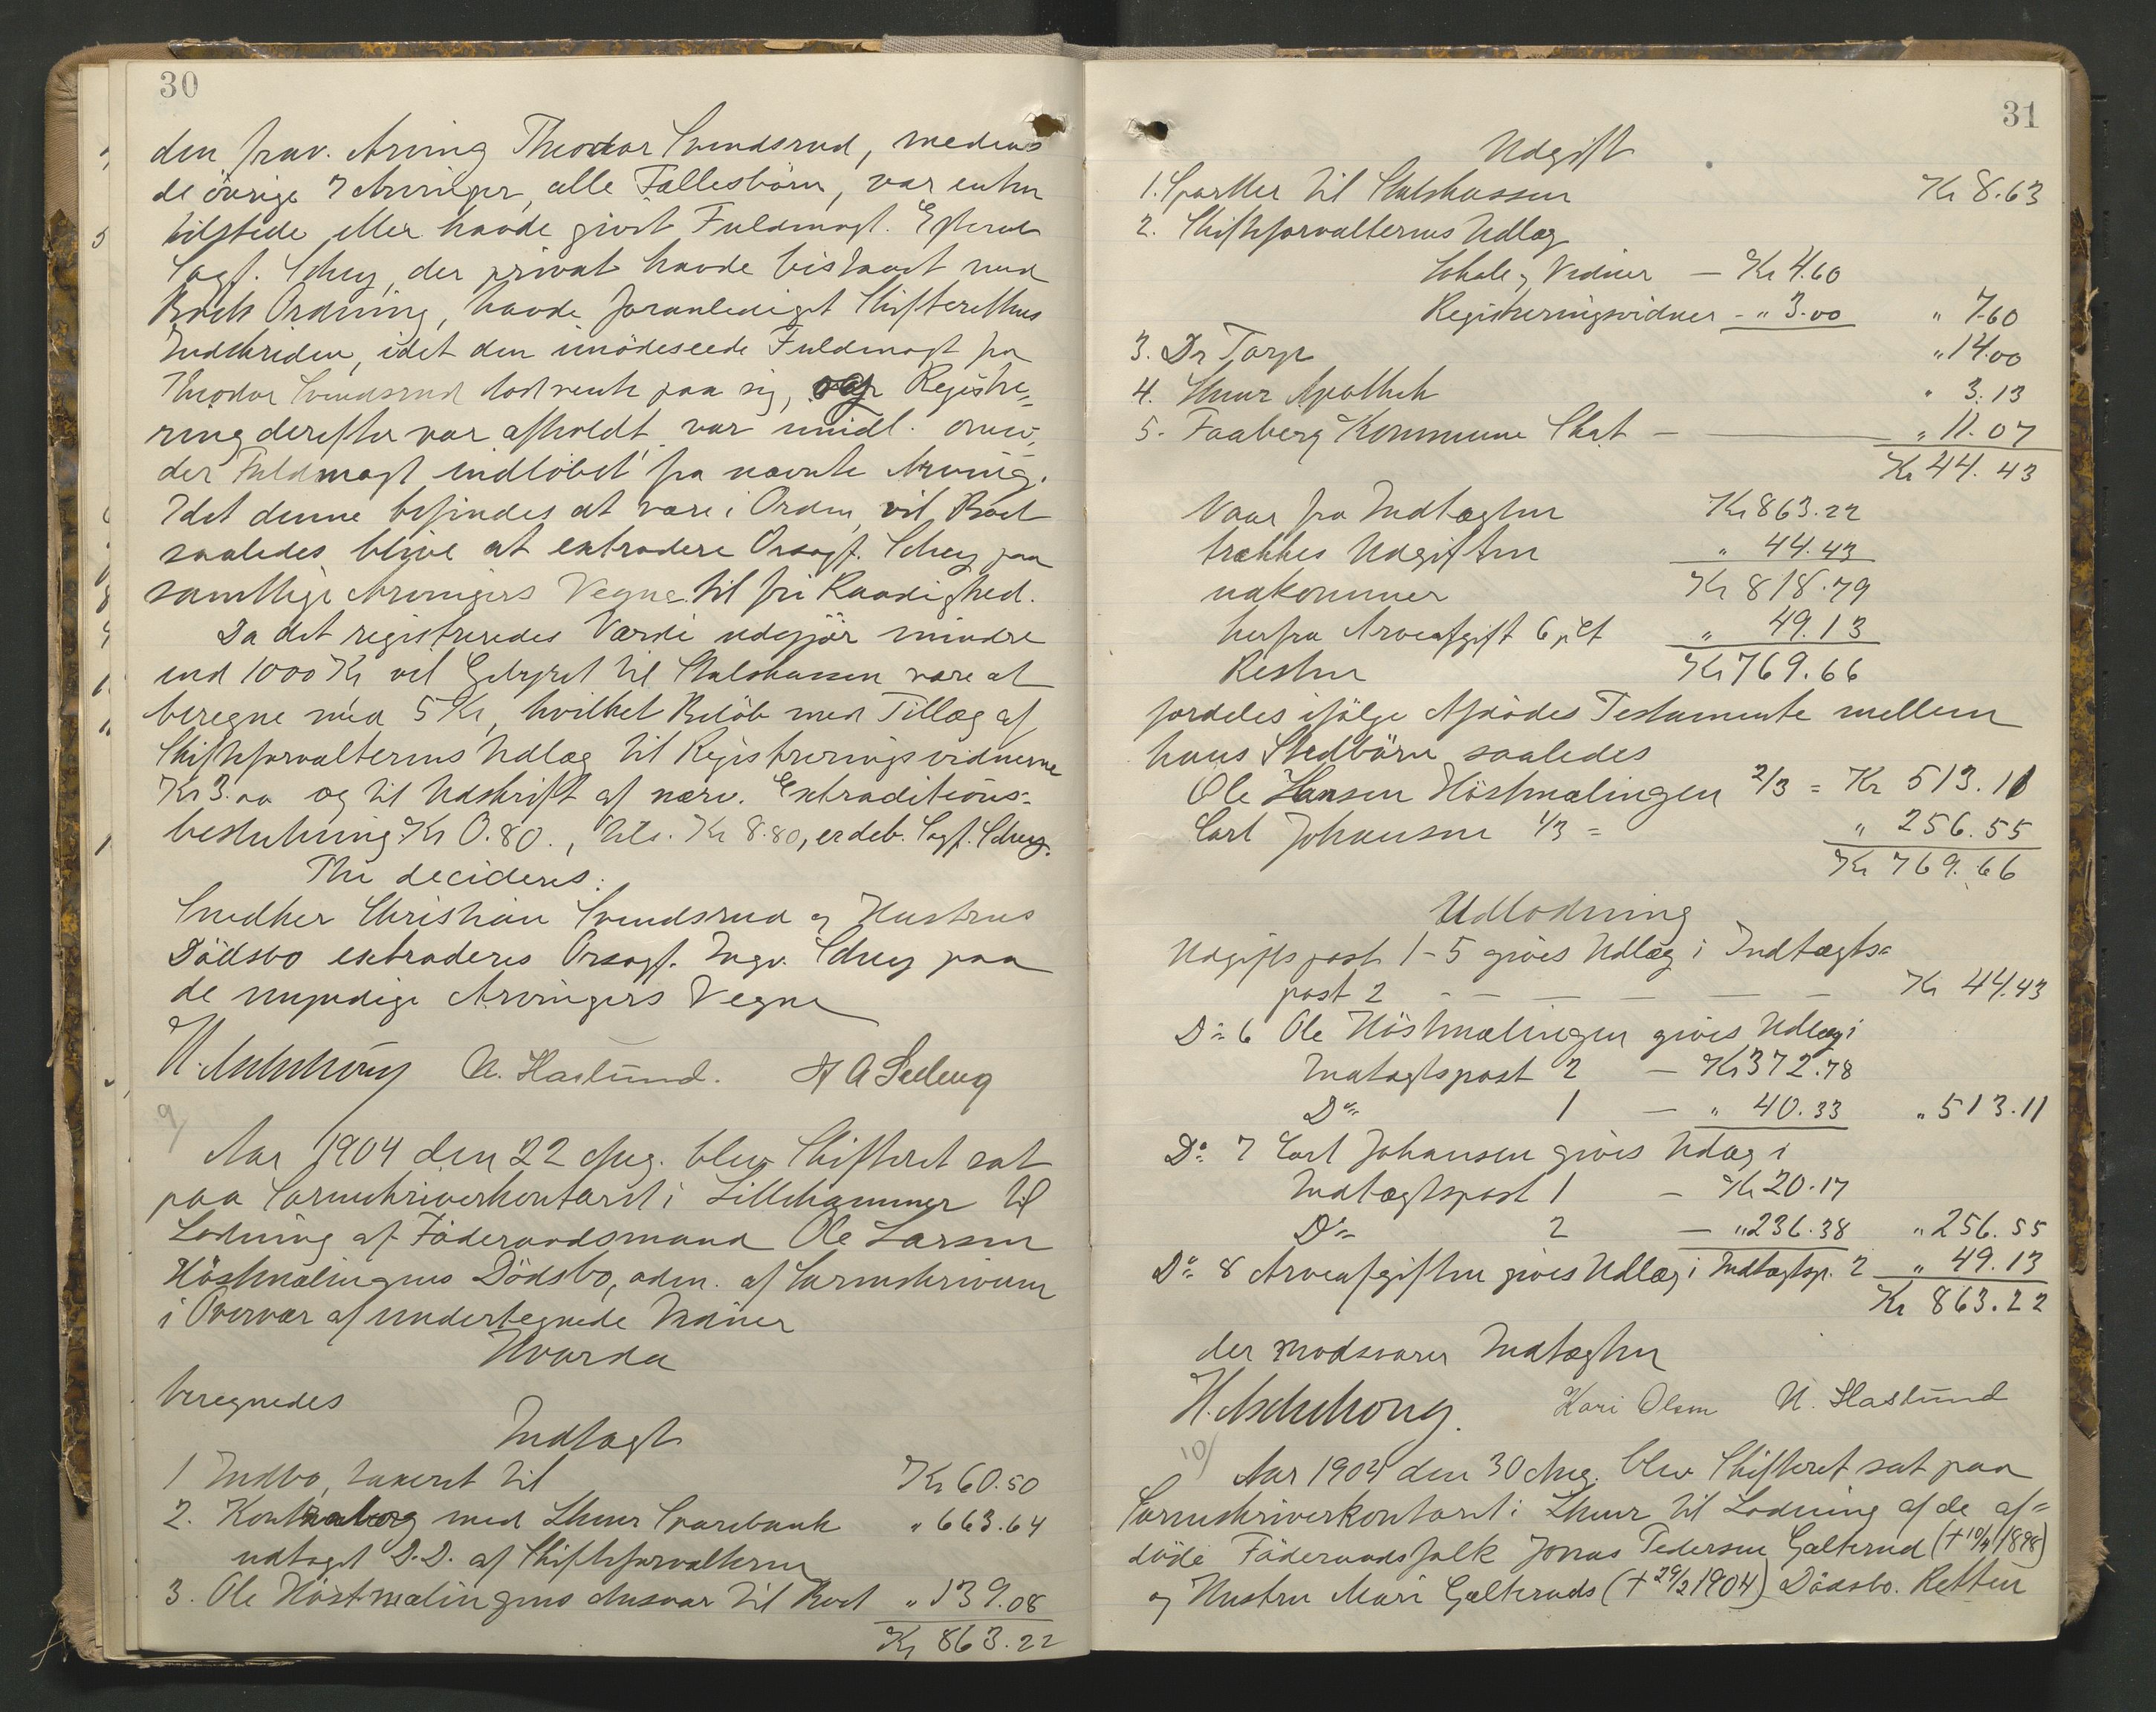 30
den frav. Arving Theodor Svendsrud, medens
de övrige 7 Arvinger, alle Fællesbörn, var enten
tilstede eller havde givet Fuldmagt. Efterat
Sagf. Schey, der privat havde bistaaet med
Boets Ordning, havde foranlediget Skifterettens
Indskriden, idet den imödeseede Fuldmagt fra
Theodor Svendsrud lod vente paa sig, og Registre-
ring derefter var afholdt var imidl. omv.
der Fuldmagt indlöbet fra nævnte Arving.
Idet denne befindes at være i Orden, vil Boet
saaledes blive at extradere Orsagf. Schey paa
samtlige Arvingers Vegne til fri Raadighed.
Da det registreredes Værdi udgjör mindre
end 1000 Kr vil Gebyret til Statskassen være at
beregne med 5 Kr, hvilket Belöb med Tillæg af
Skifteforvalterens Udlæg til Registreringsvidnerne
Kr 3.00 og til Udskrift af nærv. Extraditions-
beslutning Kr 0.80., tils. Kr 8.80, er deb. Sagf. Schey.
Thi decideres:
Snedker Christian Svendsrud og Hustrus
Dödsbo extraderes Orsagf. Ingv. Schey paa
de myndige Arvingers Vegne
H. Aschehoug U. Haslund. H A Seeberg
9/
Aar 1904 den 22 Aug. blev Skifteret sat
paa Sorenskriverkontoret i Lillehammer til
Lodning af Föderaadsmand Ole Larsen
Höstmælingens Dödsbo, adm. af Sorenskriveren
i Overvær af undertegnede Vidner
Hvorda
beregnedes
Indtægt
1 Indbo, taxeret til Kr 60.50
2. Kontrabog med Lhmr Sparebank " 663.64
udtaget D.D. af Skifteforvalteren
3. Ole Höstmælingens Ansvar til Boet " 139.08
Kr 863.22
31
Udgift
1. Sportler til Statskassen Kr 8.63
2. Skifteforvalterens Udlæg
Lokale og Vidner — Kr 4.60
Registreringsvidner - " 3.00 " 7.60
3. Dr Torp " 14.00
4. Lhmr Apothek " 3.13
5. Faaberg Kommune Skat — " 11.07
Kr 44.43
Naar fra Indtægten Kr 863.22
trækkes Udgiften " 44.43
udkommer Kr 818.79
herfra Arveafgift 6 pCt " 49.13
Resten Kr 769.66
fordeles ifölge Afdödes Testamente mellem
hans Stedbörn saaledes
Ole Hansen Höstmælingen 2/3 = Kr 513.11
Carl Johansen 1/3 = " 256.55
Kr 769.66
Udlodning
Udgiftspost 1-5 gives Udlæg i Indtægts-
post 2 - — — — — — Kr 44.43
Do 6 Ole Höstmælingen gives Udlæg i
Indtægtspost 2 — Kr 372.78
Do 1 — " 40.33 " 513.11
Do 7 Carl Johansen gives Udlæg i
Indtægtspost 1 — Kr 20.17
Do 2 — " 236.38 " 256.55
Do 8 Arveafgiften gives Udlæg i Indtægtsp. 2 " 49.13
Kr 863.22
der modsvarer Indtægten
H. Aschehoug. Kari Olsen U. Haslund
10/
Aar 1904 den 30 Aug. blev Skifteret sat paa
Sorenskriverkontoret i Lhmr til Lodning af de af-
döde Föderaadsfolk Jonas Pedersen Galterud († 10/4 1898)
og Hustru Mari Galteruds († 29/2 1904) Dödsbo. Retten